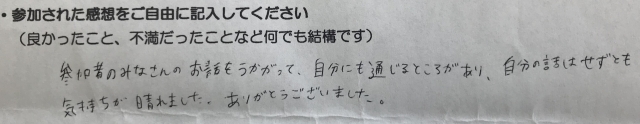 ・参加された感想をご自由に記入してください
（良かったこと、不満だったことなど何でも結構です）
参加者のみなさんのお話をうかがって、自分にも通じるところがあり、自分の話はせずとも
気持ちが晴れました。ありがとうございました。